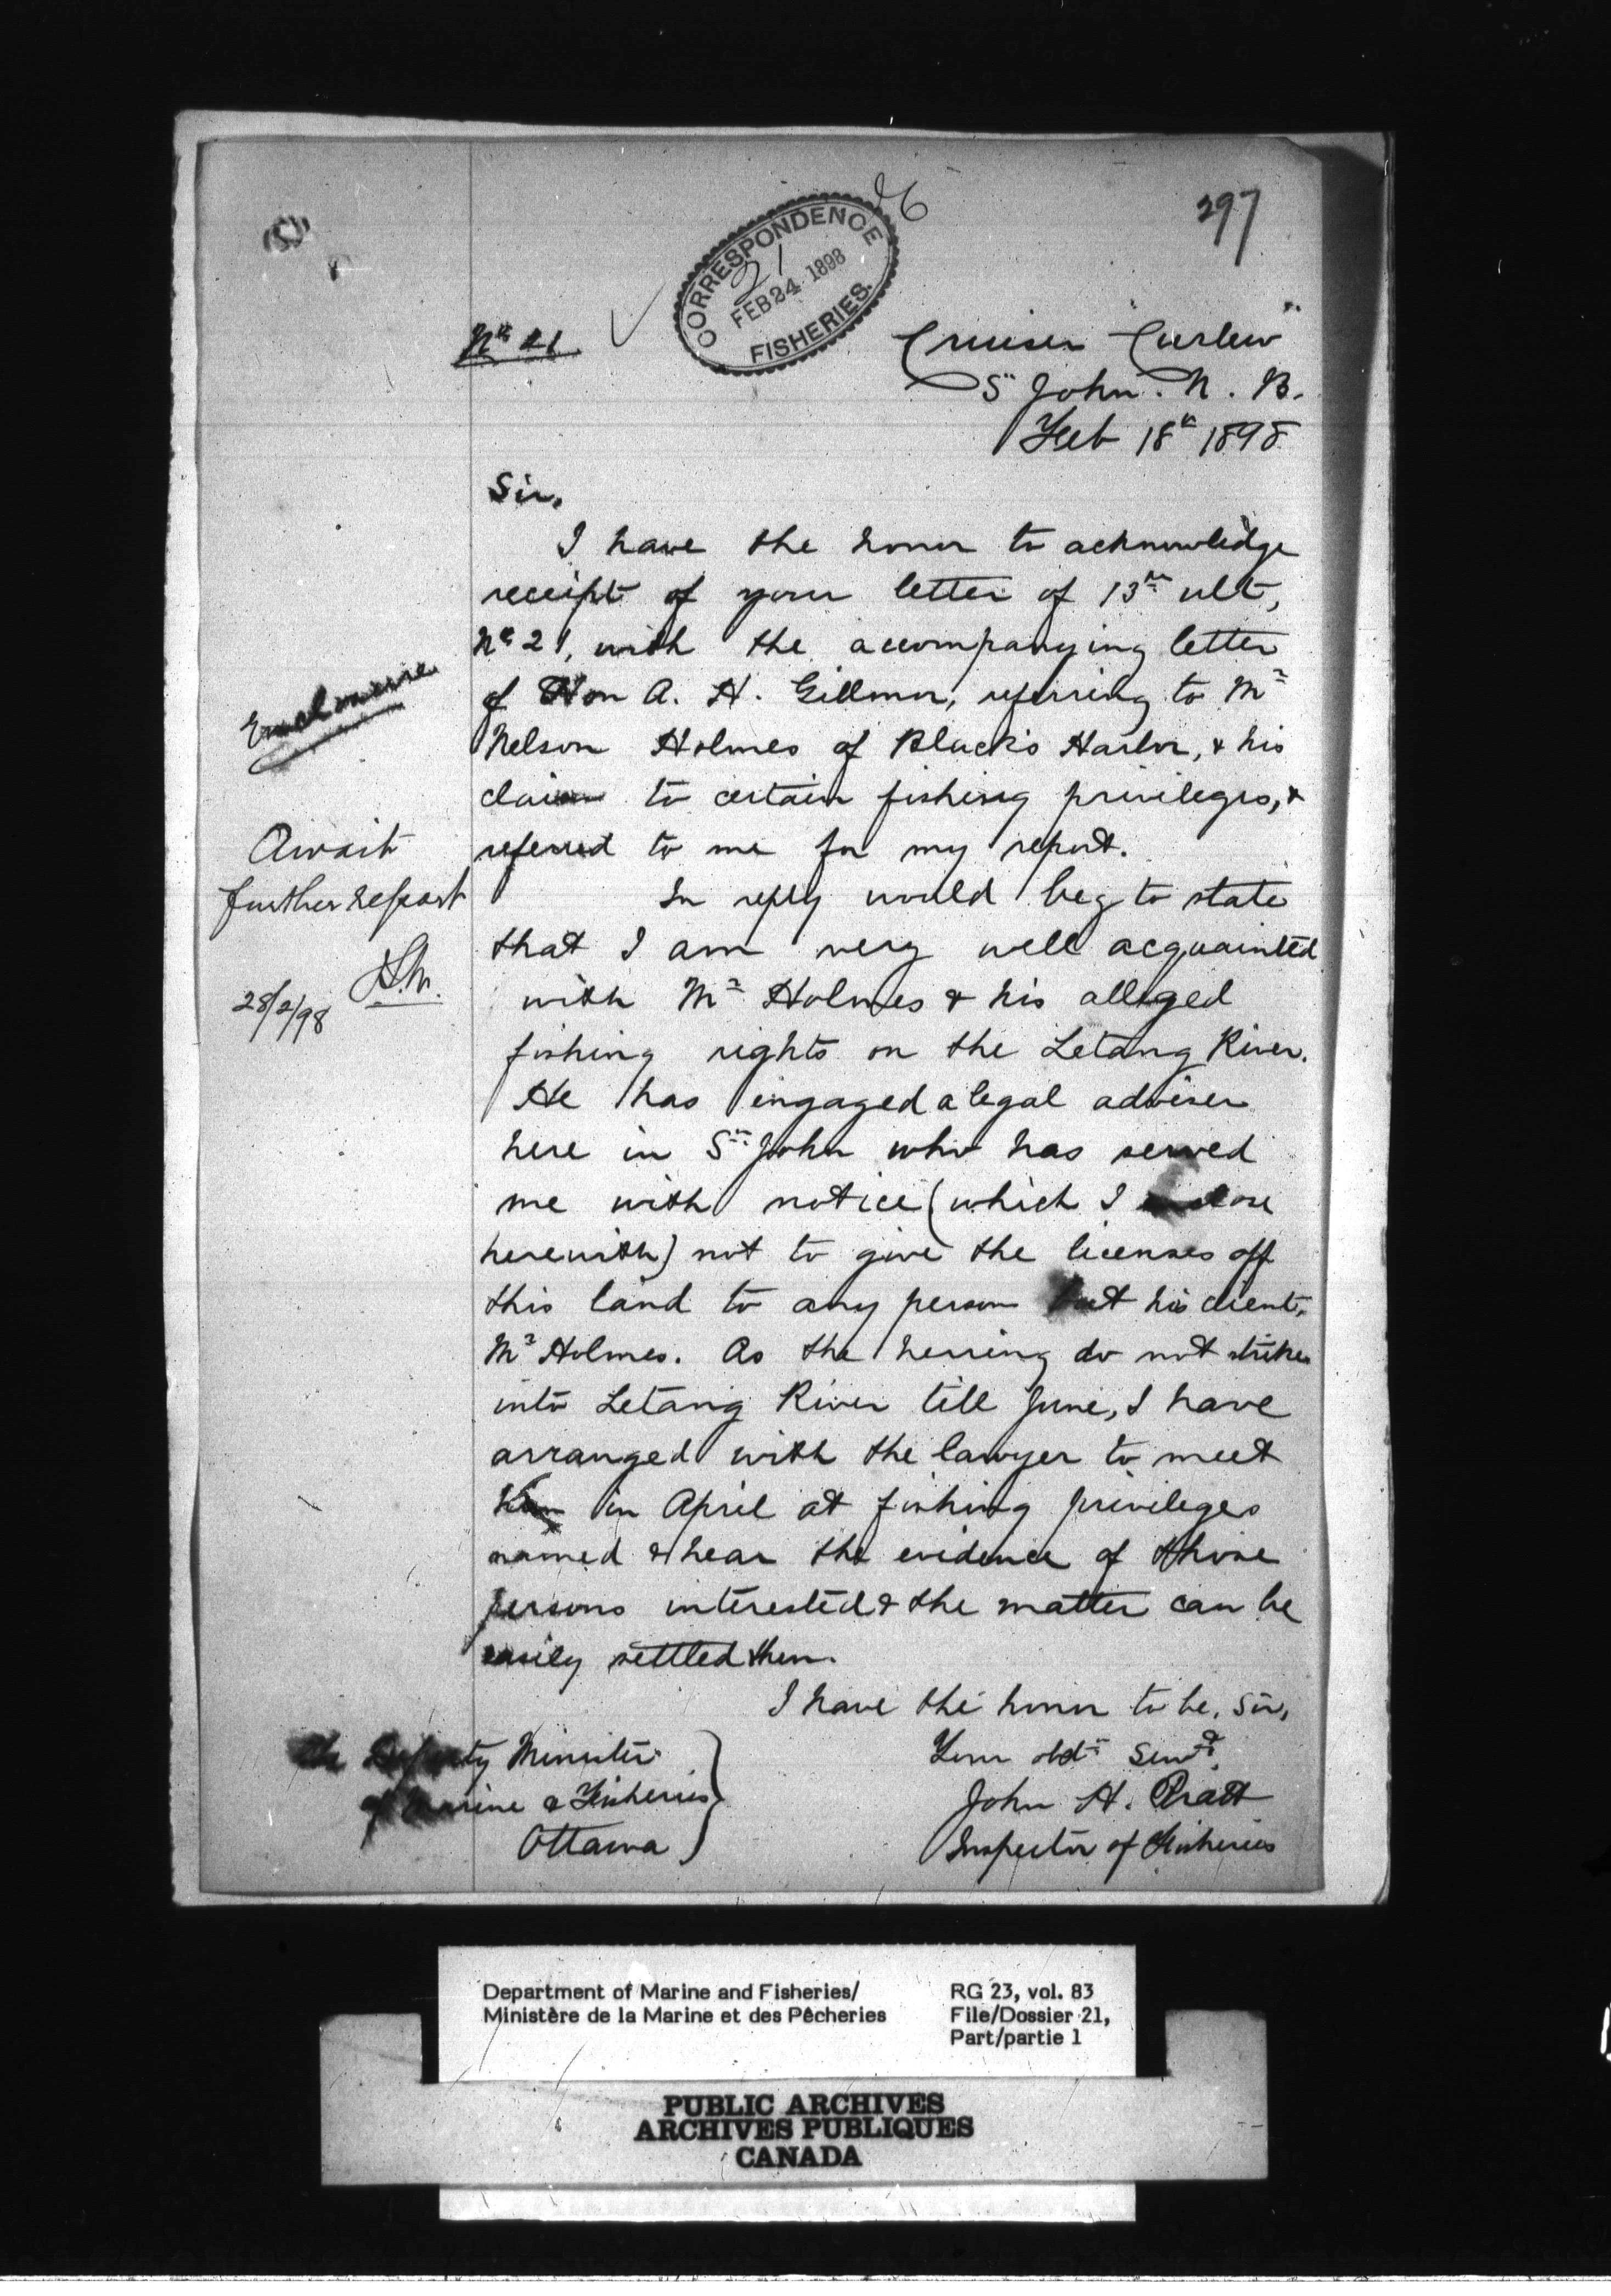 297
26
CORRESPONDENCE
21
FEB 24 1898
FISHERIES.
No 21
Cruiser "Curlew"
St John. N. B.
Feb 18th 1898
Sir,
I have the honor to acknowledge
receipt of your letter of 13th ult,
No 21, with the accompanying letter
of Hon A. H. Gillmor, referring to Mr
Nelson Holmes of Black's Harbor, & his
claim to certain fishing privileges, &
referred to me for my report.
In reply would beg to state
that I am very well acquainted
with Mr Holmes & his alleged
fishing rights on the Letang River.
He has engaged a legal adviser
here in St John who has served
me with notice (which I enclose
herewith) not to give the licenses off
this land to any person but his client,
Mr Holmes. As the herring do not strike
into Letang River till June, I have
arranged with the lawyer to meet
him in April at fishing privileges
named & hear the evidence of those
persons interested & the matter can be
easily settled then.
I have the honor to be, Sir,
Your obdt Servt,
John H. Pratt
Inspector of Fisheries
The Deputy Minister
of Marine & Fisheries
Ottawa
Enclosure
Await
further report
28/2/98
Department of Marine and Fisheries/
Ministère de la Marine et des Pêcheries
RG 23, vol. 83
File/Dossier 21,
Part/partie 1
PUBLIC ARCHIVES
ARCHIVES PUBLIQUES
CANADA